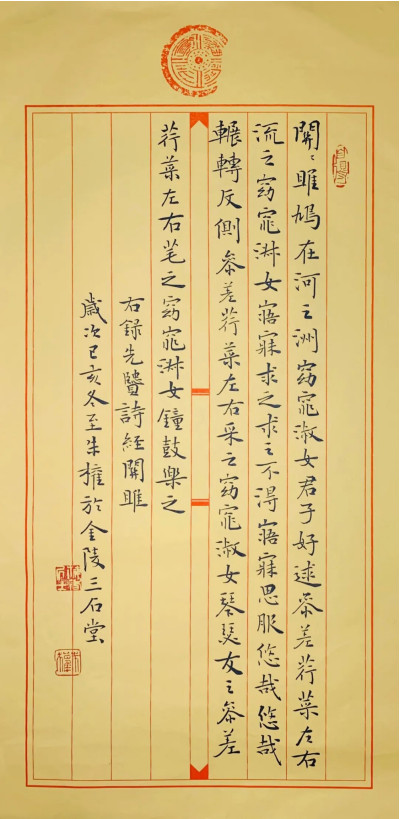 關〻雎鳩在河之洲窈窕淑女君子好逑參差荇菜左右
流之窈窕淋女寤寐求之求之不得寤寐思服悠哉悠哉
輾轉反側參差荇菜左右采之窈窕淑女琴瑟友之參差
荇菜左右芼之窈窕淋女鐘鼓樂之
右錄先賢詩經關雎
歲次己亥冬至朱權於金陵三石堂